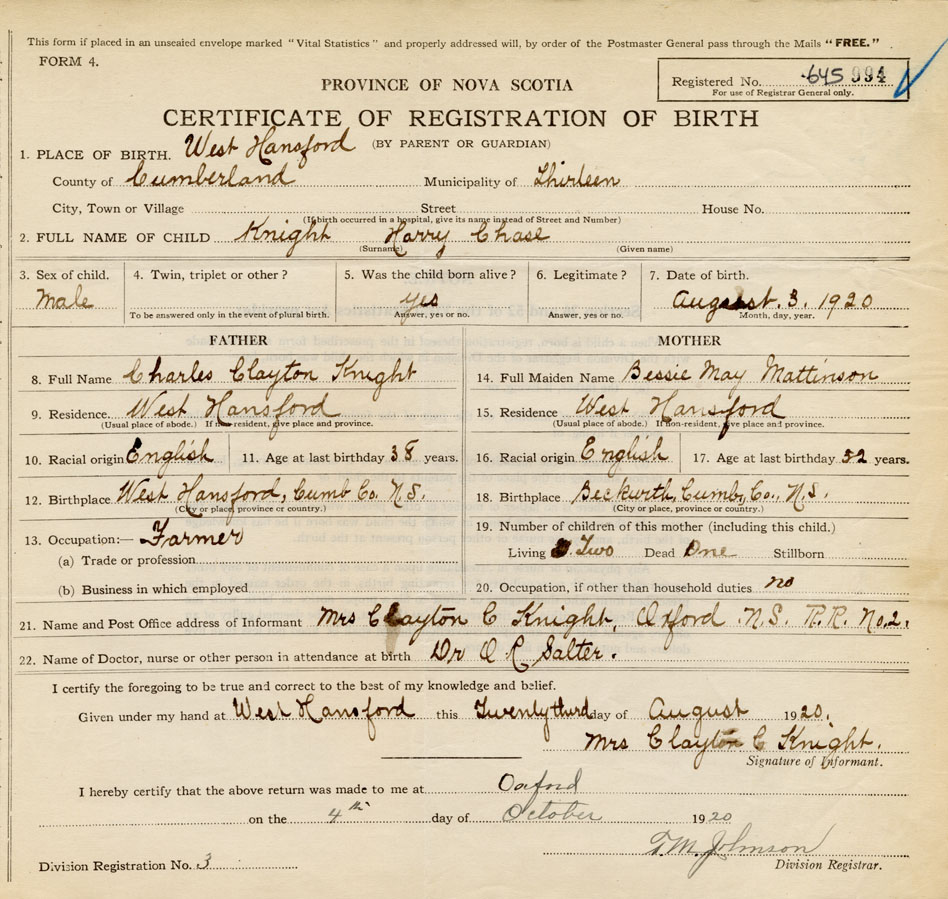 This form if placed in an unsealed envelope marked "Vital Statistics" and properly addressed will, by order of the Postmaster General pass through the Mails "FREE."
FORM 4.
Registered No. 645 994
For use of Registrar General only.
PROVINCE OF NOVA SCOTIA
CERTIFICATE OF REGISTRATION OF BIRTH
(BY PARENT OR GUARDIAN)
1. PLACE OF BIRTH. West Hansford
County of Cumberland Municipality of Thirteen
City, Town or Village Street House No.
(If birth occurred in a hospital, give its name instead of Street and Number)
2. FULL NAME OF CHILD Knight Harry Chase
(Surname) (Given name)
3. Sex of child. 4. Twin, triplet or other? 5. Was the child born alive? 6. Legitimate? 7. Date of birth.
Male yes August. 3. 1920
To be answered only in the event of plural birth. Answer, yes or no. Answer, yes or no. Month, day, year.
FATHER
8. Full Name Charles Clayton Knight
9. Residence. West Hansford
(Usual place of abode.) If non-resident, give place and province.
10. Racial origin English 11. Age at last birthday 38 years.
12. Birthplace West Hansford, Cumb Co. N.S.
(City or place, province or country.)
13. Occupation:— Farmer
(a) Trade or profession
(b) Business in which employed
MOTHER
14. Full Maiden Name Bessie May Mattinson
15. Residence West Hansford
(Usual place of abode.) If non-resident, give place and province.
16. Racial origin English 17. Age at last birthday 32 years.
18. Birthplace Beckwith, Cumb, Co., N.S.
(City or place, province or country.)
19. Number of children of this mother (including this child.)
Living Two Dead One Stillborn
20. Occupation, if other than household duties no
21. Name and Post Office address of Informant Mrs Clayton C Knight, Oxford N.S. R.R. No.2.
22. Name of Doctor, nurse or other person in attendance at birth Dr O R Salter.
I certify the foregoing to be true and correct to the best of my knowledge and belief.
Given under my hand at West Hansford this Twentythird day of August 1920.
Mrs Clayton C Knight.
Signature of Informant.
I hereby certify that the above return was made to me at Oxford
on the 4th day of October 1920
T.M. Johnson
Division Registration No. 3 Division Registrar.